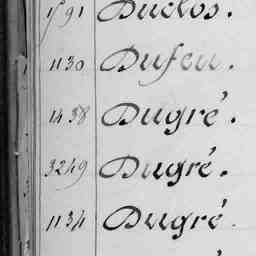 1591 Duclos.
1130 Dufeu.
1438 Dugré.
3249 Dugré.
1134 Dugré.